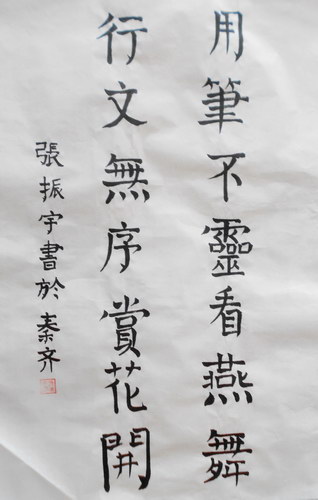 用筆不靈看燕舞
行文無序賞花開
張振宇書於秦齐